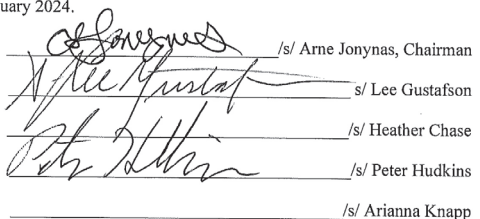 uary 2024.
/s/ Arne Jonynas, Chairman
s/ Lee Gustafson
/s/ Heather Chase
Peter Hudkins /s/ Peter Hudkins
/s/ Arianna Knapp